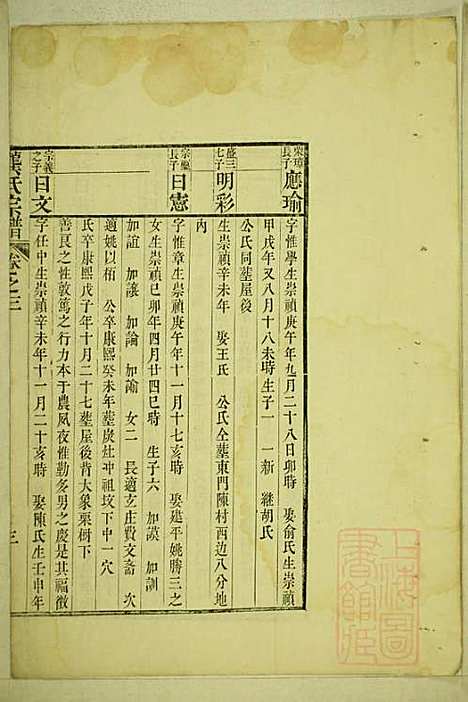 榮璋長子 應瑜
字惟學生崇禎庚午年九月二十八日卯時 娶俞氏生崇禎
甲戌年又八月十八未時生子一 一新 繼胡氏
公氏同塟屋後
盛三七子 明彩
生崇禎辛未年 娶王氏 公氏仝塟東門陳村西边八分地
內
長子 日憲
字惟章生崇禎庚午年十一月十七亥時 娶進平姚勝三之
女生崇禎己卯年四月廿四巳時 生子六 加謨 加訓
加誼 加讓 加論 加諭 女二 長適玄庄費文斎 次
適姚以栢 公卒康熙癸未年塟炭灶冲祖坟下中一穴
氏卒康熙戊子年十月二十七塟屋後背大象栗樹下
宗義之子 日文
字任中生崇禎辛未年十一月二十亥時 娶陳氏生壬申年
善良之性敦篤之行力本于農夙夜惟勤多男之慶是其福徵
氏宗譜 卷之三 三
上海圖書館藏